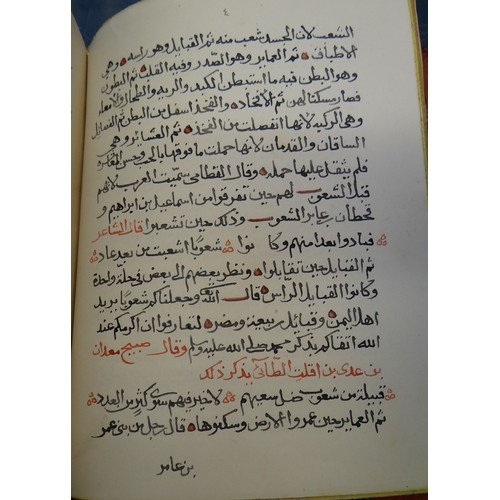 ٤
الشعب لان الجسد شعب منه ثم القبايل وهو راسه وهي
الاطباف ثم العماير وهو الصدر وفيه القلب ثم البطون
وهو البطن فيه ما استبطن الكبد والريه والطحال والامعا
فصار مسكنا لهن ثم الافخاذ والفخذ اسفل من البطن ثم الفصايل
وهي الركبه لانها انفصلت من الفخذ ثم العشاير وهي
الساقان والقدمان لانها حملت ما فوقها بالحب وحسن المعاشره
فلم يثقل عليها حمله وقال القطامي سميت العرب لانهم
قبل الشعوب لهم حين تفرقوا من اسماعيل بن ابراهيم و
قحطان بن عابر الشعوب وذلك حين تشعبوا قال الشاعر
فبادوا بعد امنهم وكانوا شعوبا اشعبت من بعد عاد
ثم القبايل حين تقابلوا ونظر بعضهم الى بعض في حلة واحدة
وكانوا القبايل الرأس قال الله وجعلناكم شعوبا يريد
اهل اليمن وقبايل ربيعة ومضر لتعارفوا ان اكرمكم عند
الله اتقاكم يذكر محمد صلى الله عليه وسلم وقال صبيح معدان
بن عدي بن افلت الطائي يذكر ذلك
قبيلة من شعوب ضل سعيهم لا خير فيهم سوى كثر من العدد
ثم العماير حين عمروا الارض وسكنوها قال جبل من بني عمر
بن عامر